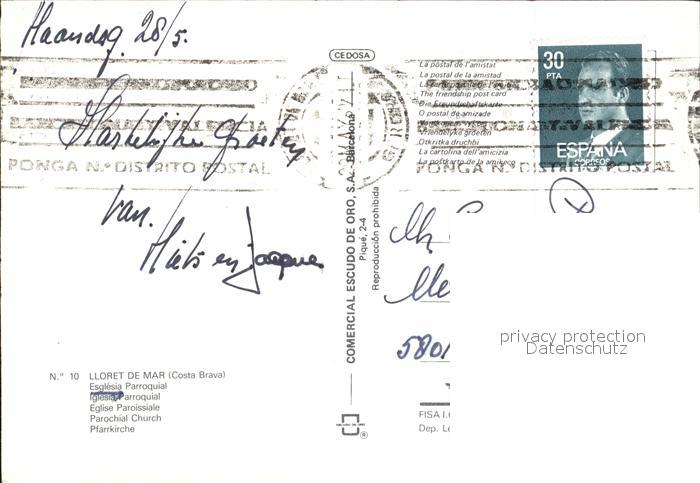 Maandag 28/5.
Hartelijke groeten
van.
en Jacques
PONGA N.º DISTRITO POSTAL
Nº 10 LLORET DE MAR (Costa Brava)
Església Parroquial
Iglesia Parroquial
Eglise Paroissiale
Parochial Church
Pfarrkirche
CEDOSA
COMERCIAL ESCUDO DE ORO, S.A. Barcelona
Piqué, 2-4
Reproducción prohibida
La postal de l'amistat
La postal de la amistad
The friendship post card
Die Freundschaftskarte
O postal de amizade
Vriendelijke groeten
Otkritka druchbi
La cartolina dell'amicizia
La poŝtkarto de la amikeco
30
PTA
ESPAÑA
CORREOS
PONGA N.º DISTRITO POSTAL
5801
privacy protection
Datenschutz
FISA I.
Dep. Le